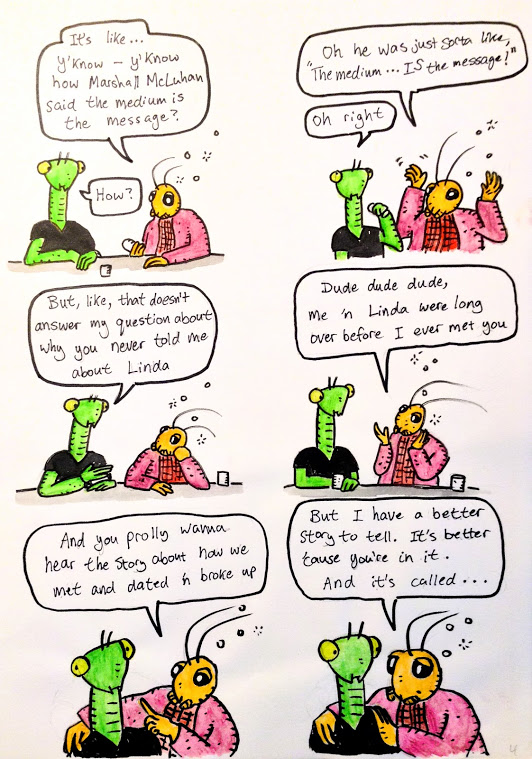 It's like...
y'know – y'know
how Marshall McLuhan
said the medium is
the message?
How?
Oh he was just sorta like,
"The medium... IS the message!"
Oh right
But, like, that doesn't
answer my question about
why you never told me
about Linda
Dude dude dude,
me 'n Linda were long
over before I ever met you
And you prolly wanna
hear the story about how we
met and dated 'n broke up
But I have a better
story to tell. It's better
'cause you're in it.
And it's called...
4